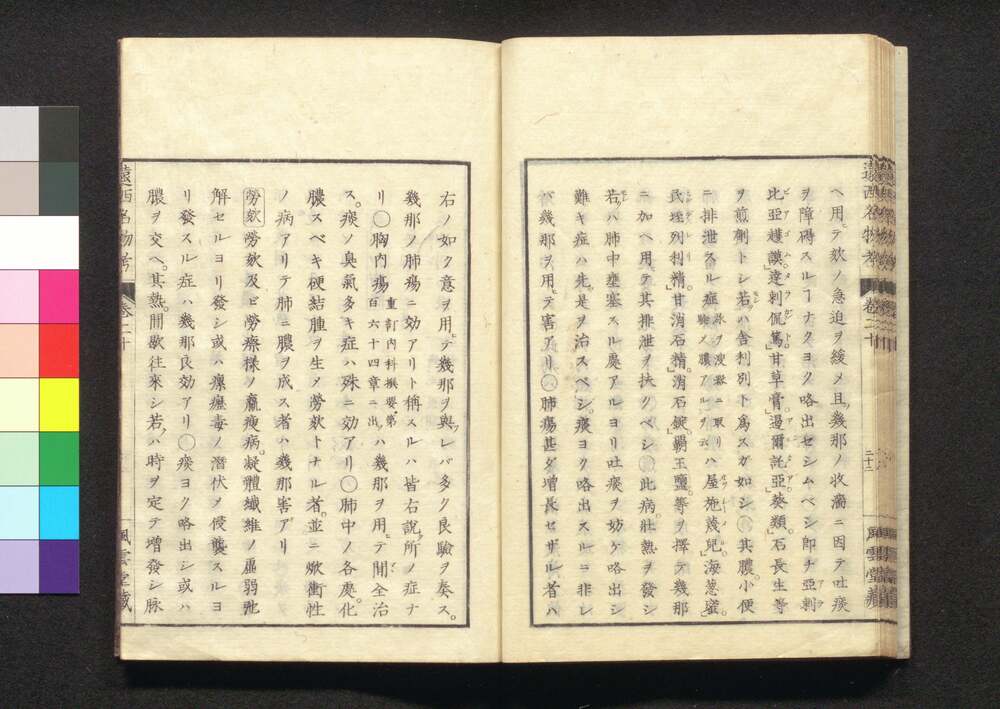 ヘ用ヒテ欬ノ急迫ヲ緩メ且ツ幾那ノ收濇ニ因テ吐痰
ヲ障碍スルヿナクヨク咯出セシムベシ卽チ亞剌
比亞護謨。達剌侃篤」甘草膏。過爾託亞。葵類。石長生等
ヲ煎劑トシ若クハ舎利別ト爲スガ如シ○其膿。小便
ニ排泄スル症 ハ屋施蔑兒」海葱蜜。
民埀列利精」甘消石精」消石鹻」覇王鹽。等ヲ擇テ幾那
ニ加ヘ用テ其排泄ヲ扶クベシ○此病。壯熱ヲ發シ
若クハ肺中壅塞スル處アルヨリ吐痰ヲ妨ゲ咯出シ
難キ症ハ先ヅ是ヲ治スベシ。痰ヨク咯出スルニ非レ
バ幾那ヲ用ヒテ害アリ○肺瘍甚ダ增長セザル者ハ
遠西名物考 卷二十 二十二 風雲堂藏
右ノ如ク意ヲ用ヒテ幾那ヲ與レバ多ク良驗ヲ奏ス。
幾那ノ肺瘍ニ効アリト稱スルハ皆右說所ノ症ナ
リ○胸內瘍 重訂內科撰要。第百六十四章ニ出 ハ幾那ヲ用ヒテ間全治
ス。痰ノ臭氣多キ症ハ殊ニ効アリ○肺中ノ各處化
膿スベキ硬結腫ヲ生メ勞欬トナル者。並ニ焮衝性
ノ病アリテ肺ニ膿ヲ成ス者ハ幾那害アリ
勞欬 勞欬及ビ勞瘵樣ノ羸瘦病。凝體纖維ノ虛弱弛
解セルヨリ發シ或ハ瘰癧毒ノ潛伏メ侵襲スルヨ
リ發スル症ハ幾那良効アリ○痰ヨク咯出シ或ハ
膿ヲ交ヘ。其熱。間歇往來シ若クハ時ヲ定テ增發シ脉
遠西名物考 卷二十 風雲堂藏